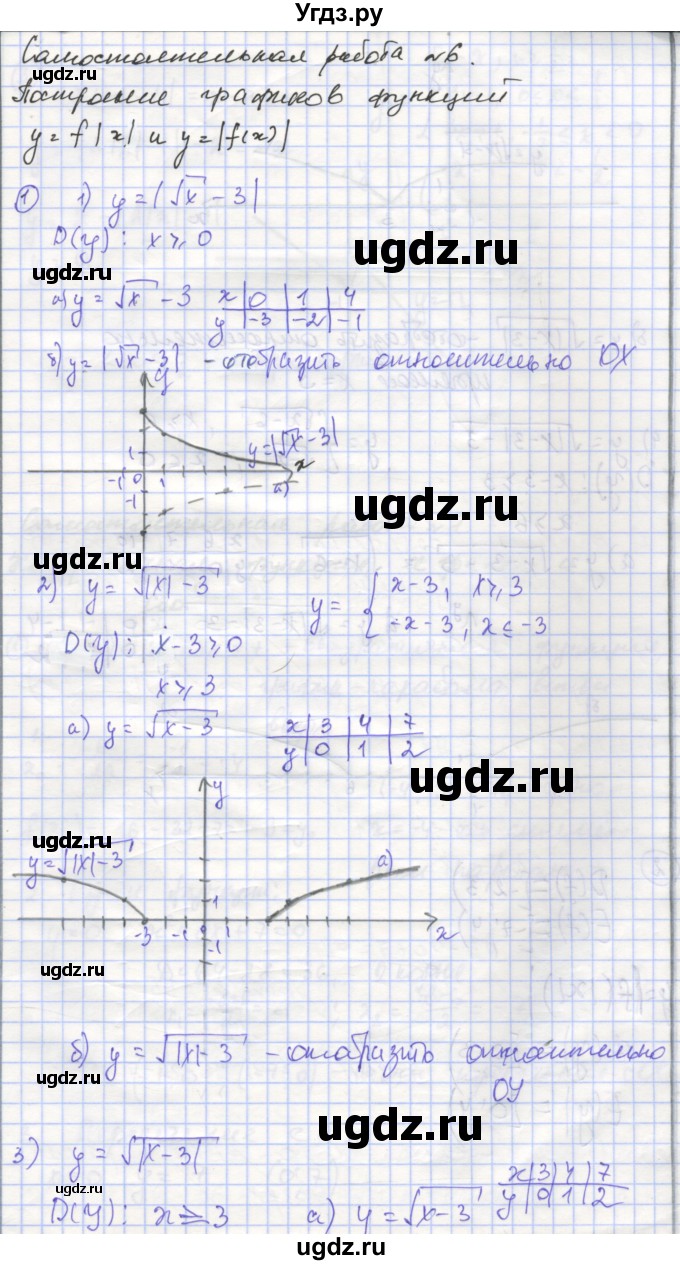 Угдз.ру
Самостоятельная работа №6.
Построение графиков функций
y = f|x| и y = |f(x)|
① 1) y = |√x - 3|
D(y): x ⩾ 0
а) y = √x - 3 x | 0 | 1 | 4
y | -3 | -2 | -1
б) y = |√x - 3| - отобразить относительно OX
y
y = |√x - 3|
1
x
-1 0 1
а)
-1
2) y = √|x| - 3
y = { x - 3, x ⩾ 3
-x - 3, x ⩽ -3
D(y): x - 3 ⩾ 0
x ⩾ 3
а) y = √x - 3 x | 3 | 4 | 7
y | 0 | 1 | 2
y
y = √|x| - 3
а)
1
-3 -1 0 1 x
-1
б) y = √|x| - 3 - отобразить относительно
OY
3) y = √|x - 3|
x | 3 | 4 | 7
y | 0 | 1 | 2
D(y): x ⩾ 3 а) y = √x - 3
ugdz.ru
ugdz.ru
ugdz.ru
ugdz.ru
ugdz.ru
ugdz.ru
ugdz.ru
ugdz.ru
ugdz.ru
ugdz.ru
ugdz.ru
ugdz.ru
ugdz.ru
ugdz.ru